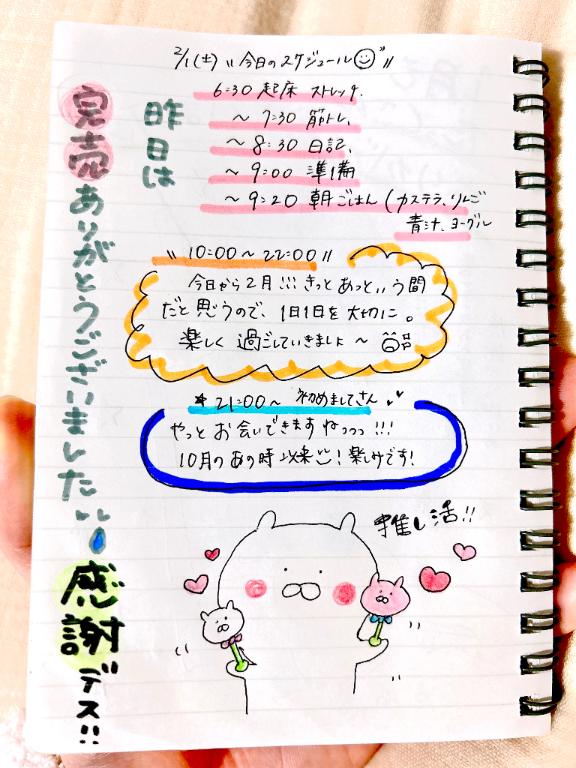 2/1(土) "今日のスケジュール"
6:30 起床 ストレッチ、
~ 7:30 筋トレ、
~ 8:30 日記、
~ 9:00 準備
~ 9:20 朝ごはん (カステラ、りんご
青汁、ヨーグル
昨日は
完売ありがとうございました!!
感謝デス!!
"10:00~22:00"
今日から2月!!! きっとあっという間
だと思うので、1日1日を大切に。
楽しく過ごしていきましょ~
* 21:00~ 初めましてさん
やっとお会いできますねっっっ!!!
10月のあの時以来! 楽しみです!
推し活!!